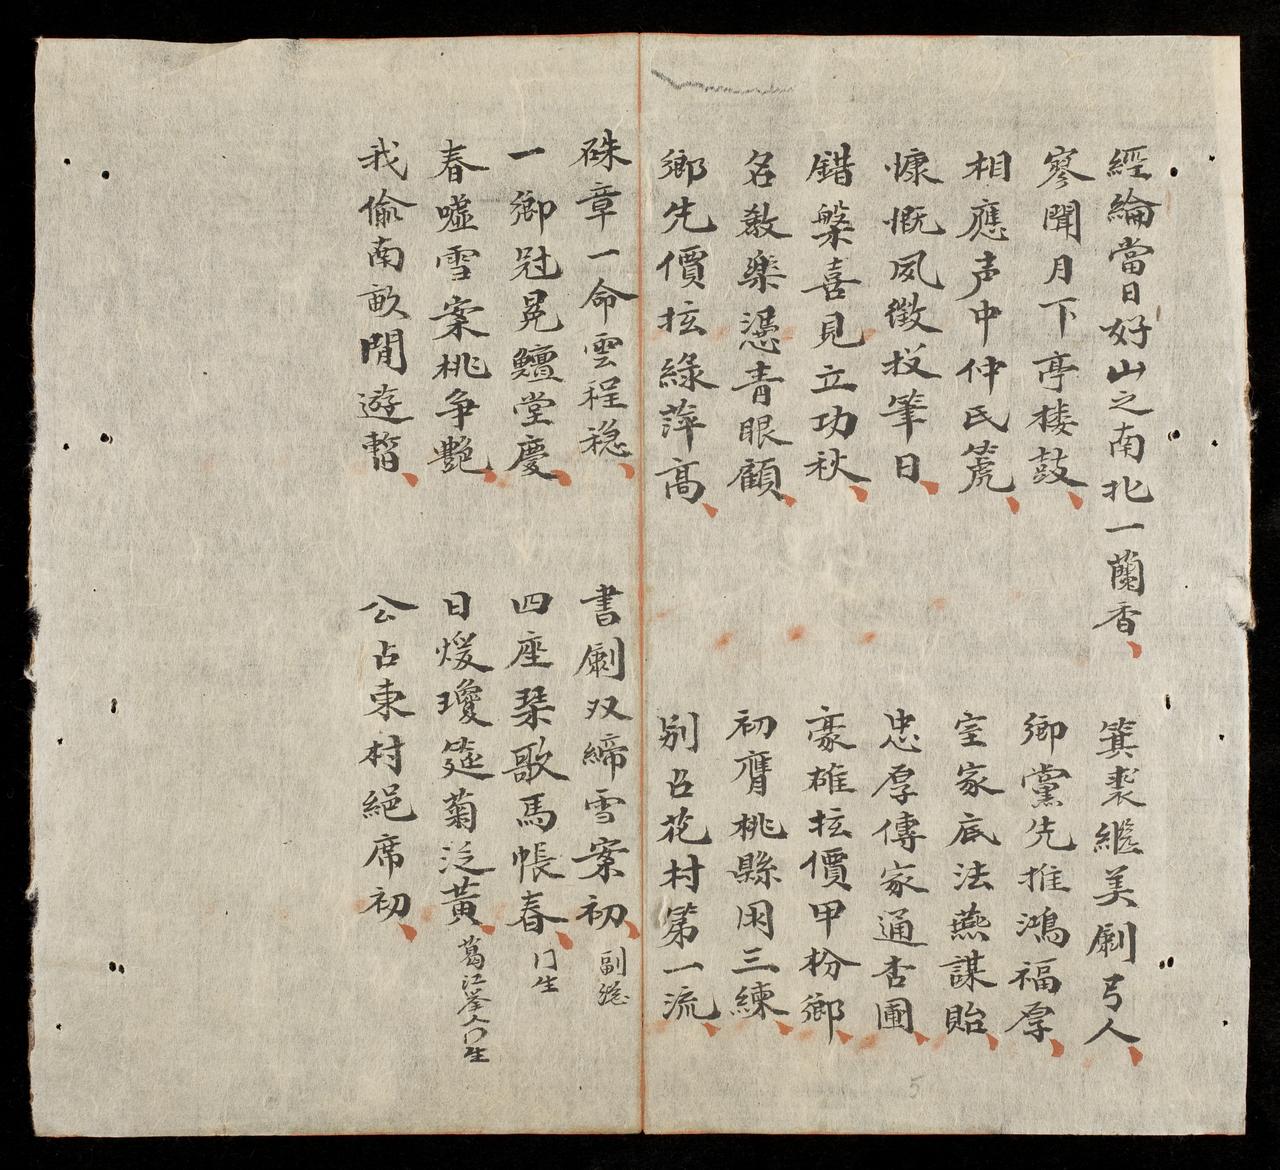 經綸當日好山之南北一蘭香
箕裘繼美劇弓人
寥聞月下亭樓鼓
鄉黨先推鴻福厚
相應声中仲氏篪
室家底法燕謀貽
慷慨夙徵投筆日
忠厚傳家通杏圃
錯槃喜見立功秋
豪雄拡價甲枌鄉
名教樂憑青眼顧
初膺桃縣困三練
鄉先價拡綠萍高
別占花村第一流
硃章一命雲程穏
書劇双締雪案初
副総
一鄉冠冕鱣堂慶
四座琹歌馬帳春
門生
春噓雪案桃争艷
日煖瓊筵菊泛黃
葛江峇人门生
我偷南畝閒遊暫
公占東村絕席初
5